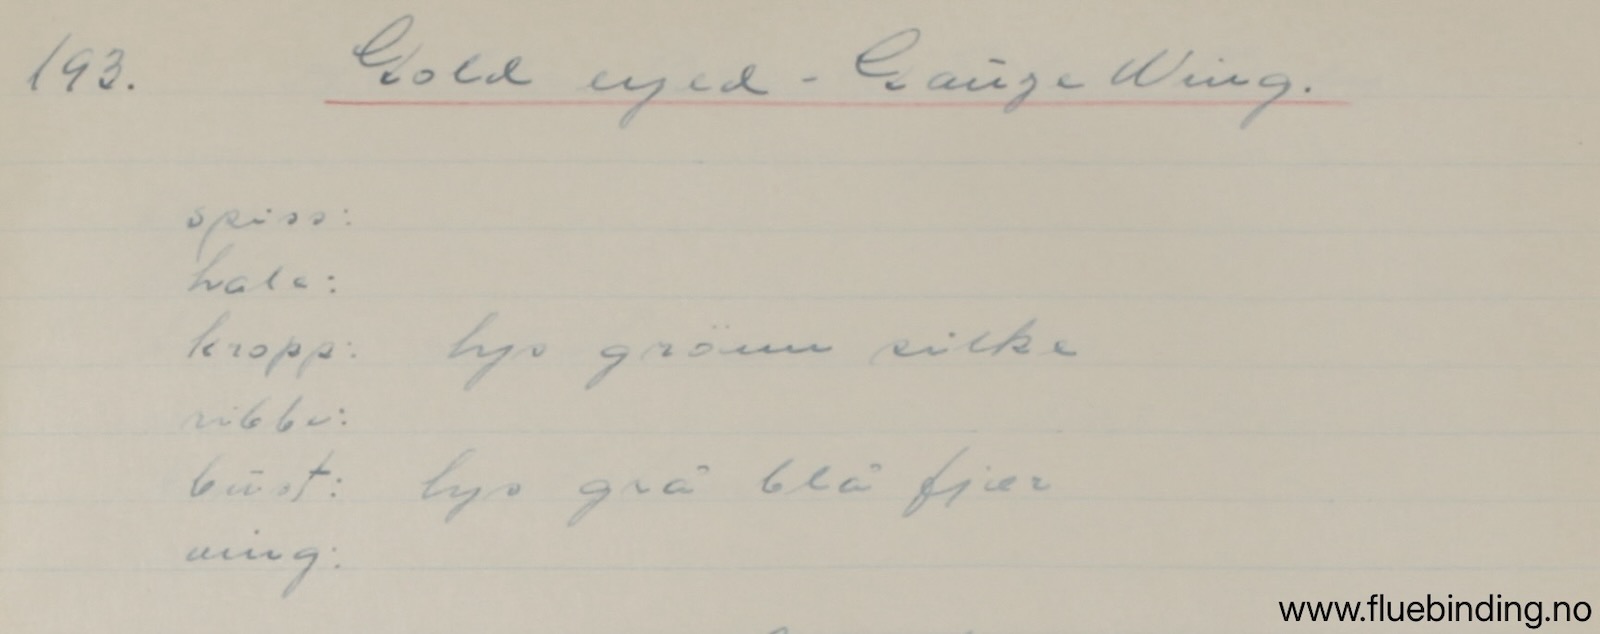 193. Gold eyed - Gauze Wing.
spiss:
hale:
kropp: lys grönn silke
ribbe:
bust: lys grå blå fjær
ving:
www.fluebinding.no